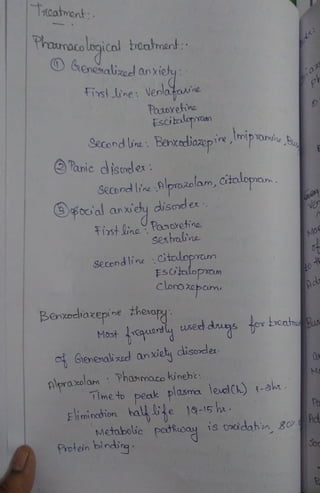 Treatment:-
Pharmacological treatment:-
① Generalized anxiety:
First line: Venlafaxine
Paroxetine
Escitalopram
Second line: Benzodiazepine, Imipramine, Bus
② Panic disorder:
Second line: Alprazolam, Citalopram.
③ Social anxiety disorder:
First line: Paroxetine
Sertraline
Second line: Citalopram
Escitalopram
Clonozepam.
Benzodiazepine therapy:
Most frequently used drugs for treatmen
of Generalized anxiety disorder.
Alprazolam - Pharmacokinetic:
Time to peak plasma level(h) 1-2hr.
Elimination half life 12-15 hr.
Metabolic pathway is oxidation, 80%
Protein binding.